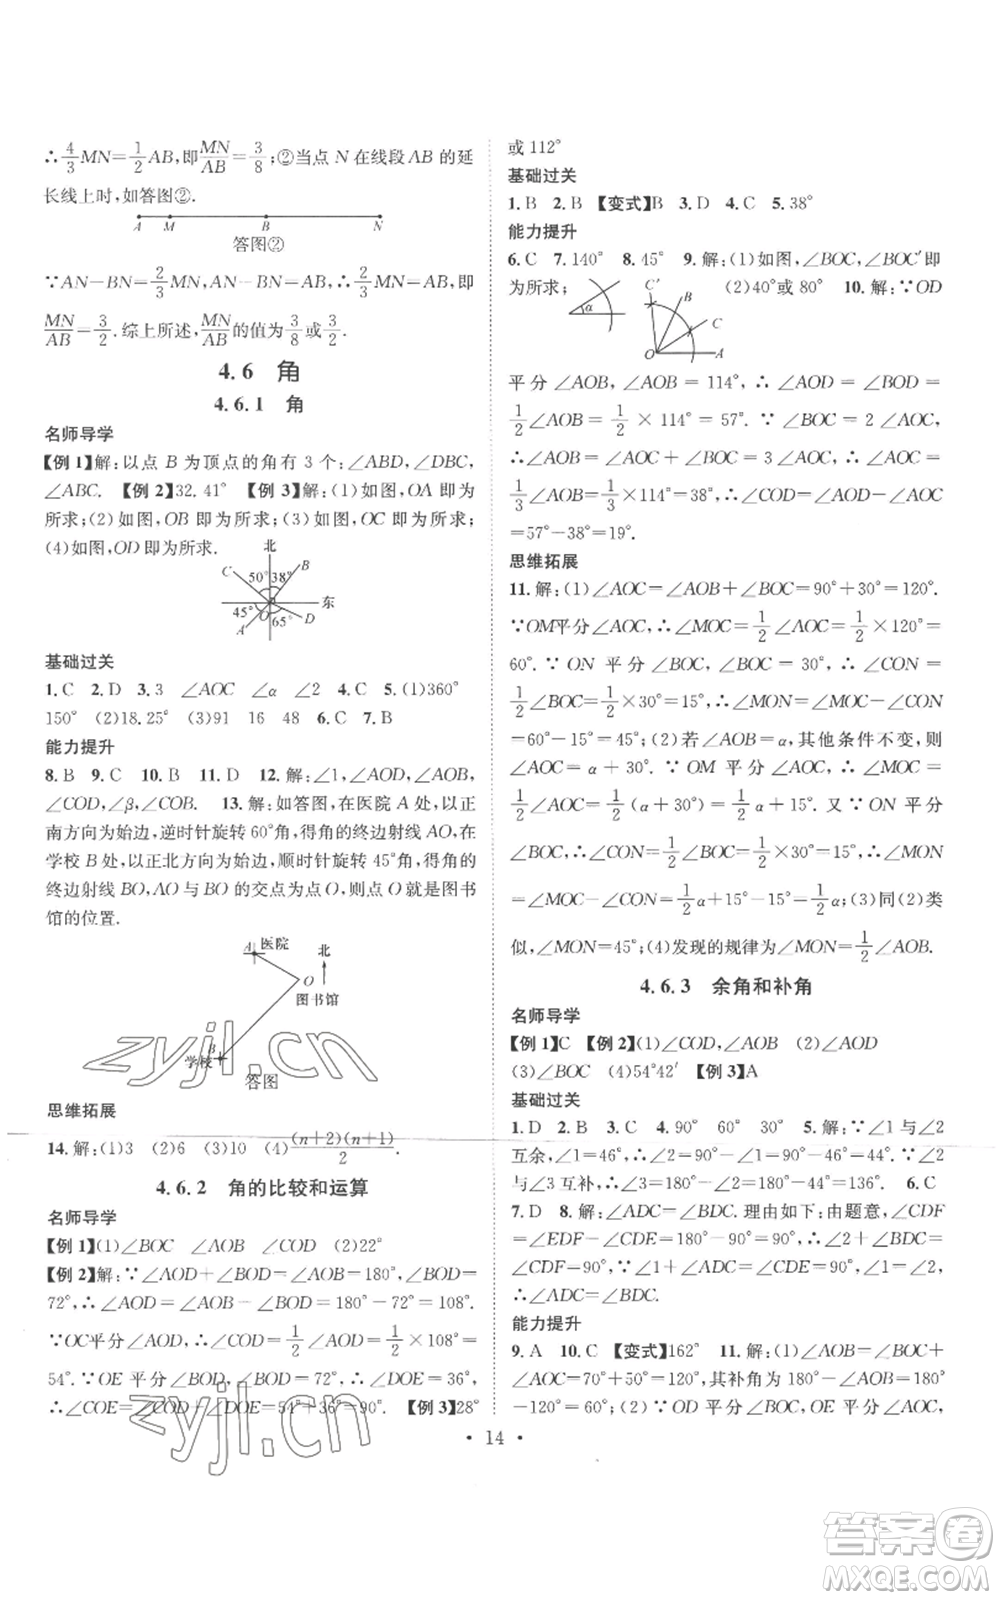 ∴4/3MN=1/2AB,即MN/AB=3/8;②当点 N 在线段 AB 的延
长线上时,如答图②.
A M B N
答图②
∵AN-BN=2/3MN,AN-BN=AB,∴2/3MN=AB,即
MN/AB=3/2.综上所述,MN/AB的值为3/8或3/2.
4.6 角
4.6.1 角
名师导学
【例 1】解:以点 B 为顶点的角有 3 个:∠ABD,∠DBC,
∠ABC. 【例 2】32.41° 【例 3】解:(1)如图,OA 即为
所求;(2)如图,OB 即为所求;(3)如图,OC 即为所求;
(4)如图,OD 即为所求.
北
C 50° 38° B
45° O 东
A 65° D
基础过关
1.C 2.D 3.3 ∠AOC ∠α ∠2 4.C 5.(1)360°
150° (2)18.25° (3)91 16 48 6.C 7.B
能力提升
8.B 9.C 10.B 11.D 12.解:∠1,∠AOD,∠AOB,
∠COD,∠β,∠COB. 13.解:如答图,在医院 A 处,以正
南方向为始边,逆时针旋转 60°角,得角的终边射线 AO,在
学校 B 处,以正北方向为始边,顺时针旋转 45°角,得角的
终边射线 BO,AO 与 BO 的交点为点 O,则点 O 就是图书
馆的位置.
A 医院 北
O
图书馆
B
学校
答图
zyjl.cn
思维拓展
14.解:(1)3 (2)6 (3)10 (4)(n+2)(n+1)/2.
4.6.2 角的比较和运算
名师导学
【例 1】(1)∠BOC ∠AOB ∠COD (2)22°
【例 2】解:∵∠AOD+∠BOD=∠AOB=180°,∠BOD=
72°,∴∠AOD=180°-∠BOD=180°-72°=108°.
∵OC平分∠AOD,∴∠COD=1/2∠AOD=1/2×108°=
54°.∵OE 平分∠BOD,∠BOD=72°,∴∠DOE=36°,
∴∠COE=∠COD+∠DOE=54°+36°=90°. 【例 3】28°
或 112°
基础过关
1.B 2.B 【变式】B 3.D 4.C 5.38°
能力提升
6.C 7.140° 8.45° 9.解:(1)如图,∠BOC,∠BOC′即
为所求; (2)40°或 80° 10.解:∵OD
α
C′ B
C
O A
平分∠AOB,∠AOB=114°,∴∠AOD=∠BOD=
1/2∠AOB=1/2×114°=57°.∵∠BOC=2∠AOC,
∴∠AOB=∠AOC+∠BOC=3∠AOC,∴∠AOC=
1/3∠AOB=1/3×114°=38°,∴∠COD=∠AOD-∠AOC
=57°-38°=19°.
思维拓展
11.解:(1)∠AOC=∠AOB+∠BOC=90°+30°=120°.
∵OM平分∠AOC,∴∠MOC=1/2∠AOC=1/2×120°=
60°.∵ON 平分∠BOC,∠BOC=30°,∴∠CON=
1/2∠BOC=1/2×30°=15°,∴∠MON=∠MOC-∠CON
=60°-15°=45°;(2)若∠AOB=α,其他条件不变,则
∠AOC=α+30°.∵OM 平分∠AOC,∴∠MOC=
1/2∠AOC=1/2(α+30°)=1/2α+15°.又∵ON 平分
∠BOC,∴∠CON=1/2∠BOC=1/2×30°=15°,∴∠MON
=∠MOC-∠CON=1/2α+15°-15°=1/2α;(3)同(2)类
似,∠MON=45°;(4)发现的规律为∠MON=1/2∠AOB.
4.6.3 余角和补角
名师导学
【例 1】C 【例 2】(1)∠COD,∠AOB (2)∠AOD
(3)∠BOC (4)54°42′ 【例 3】A
基础过关
1.D 2.B 3.C 4.90° 60° 30° 5.解:∵∠1与∠2
互余,∠1=46°,∴∠2=90°-∠1=90°-46°=44°.∵∠2
与∠3 互补,∴∠3=180°-∠2=180°-44°=136°. 6.C
7.D 8.解:∠ADC=∠BDC.理由如下:由题意,∠CDF
=∠EDF-∠CDE=180°-90°=90°,∴∠2+∠BDC=
∠CDF=90°,∠1+∠ADC=∠CDE=90°,∵∠1=∠2,
∴∠ADC=∠BDC.
能力提升
9.A 10.C 【变式】162° 11.解:(1)∠AOB=∠BOC+
∠AOC=70°+50°=120°,其补角为 180°-∠AOB=180°
-120°=60°;(2)∵OD 平分∠BOC,OE 平分∠AOC,
zyjl.cn
• 14 •
答案圈
MXQE.COM